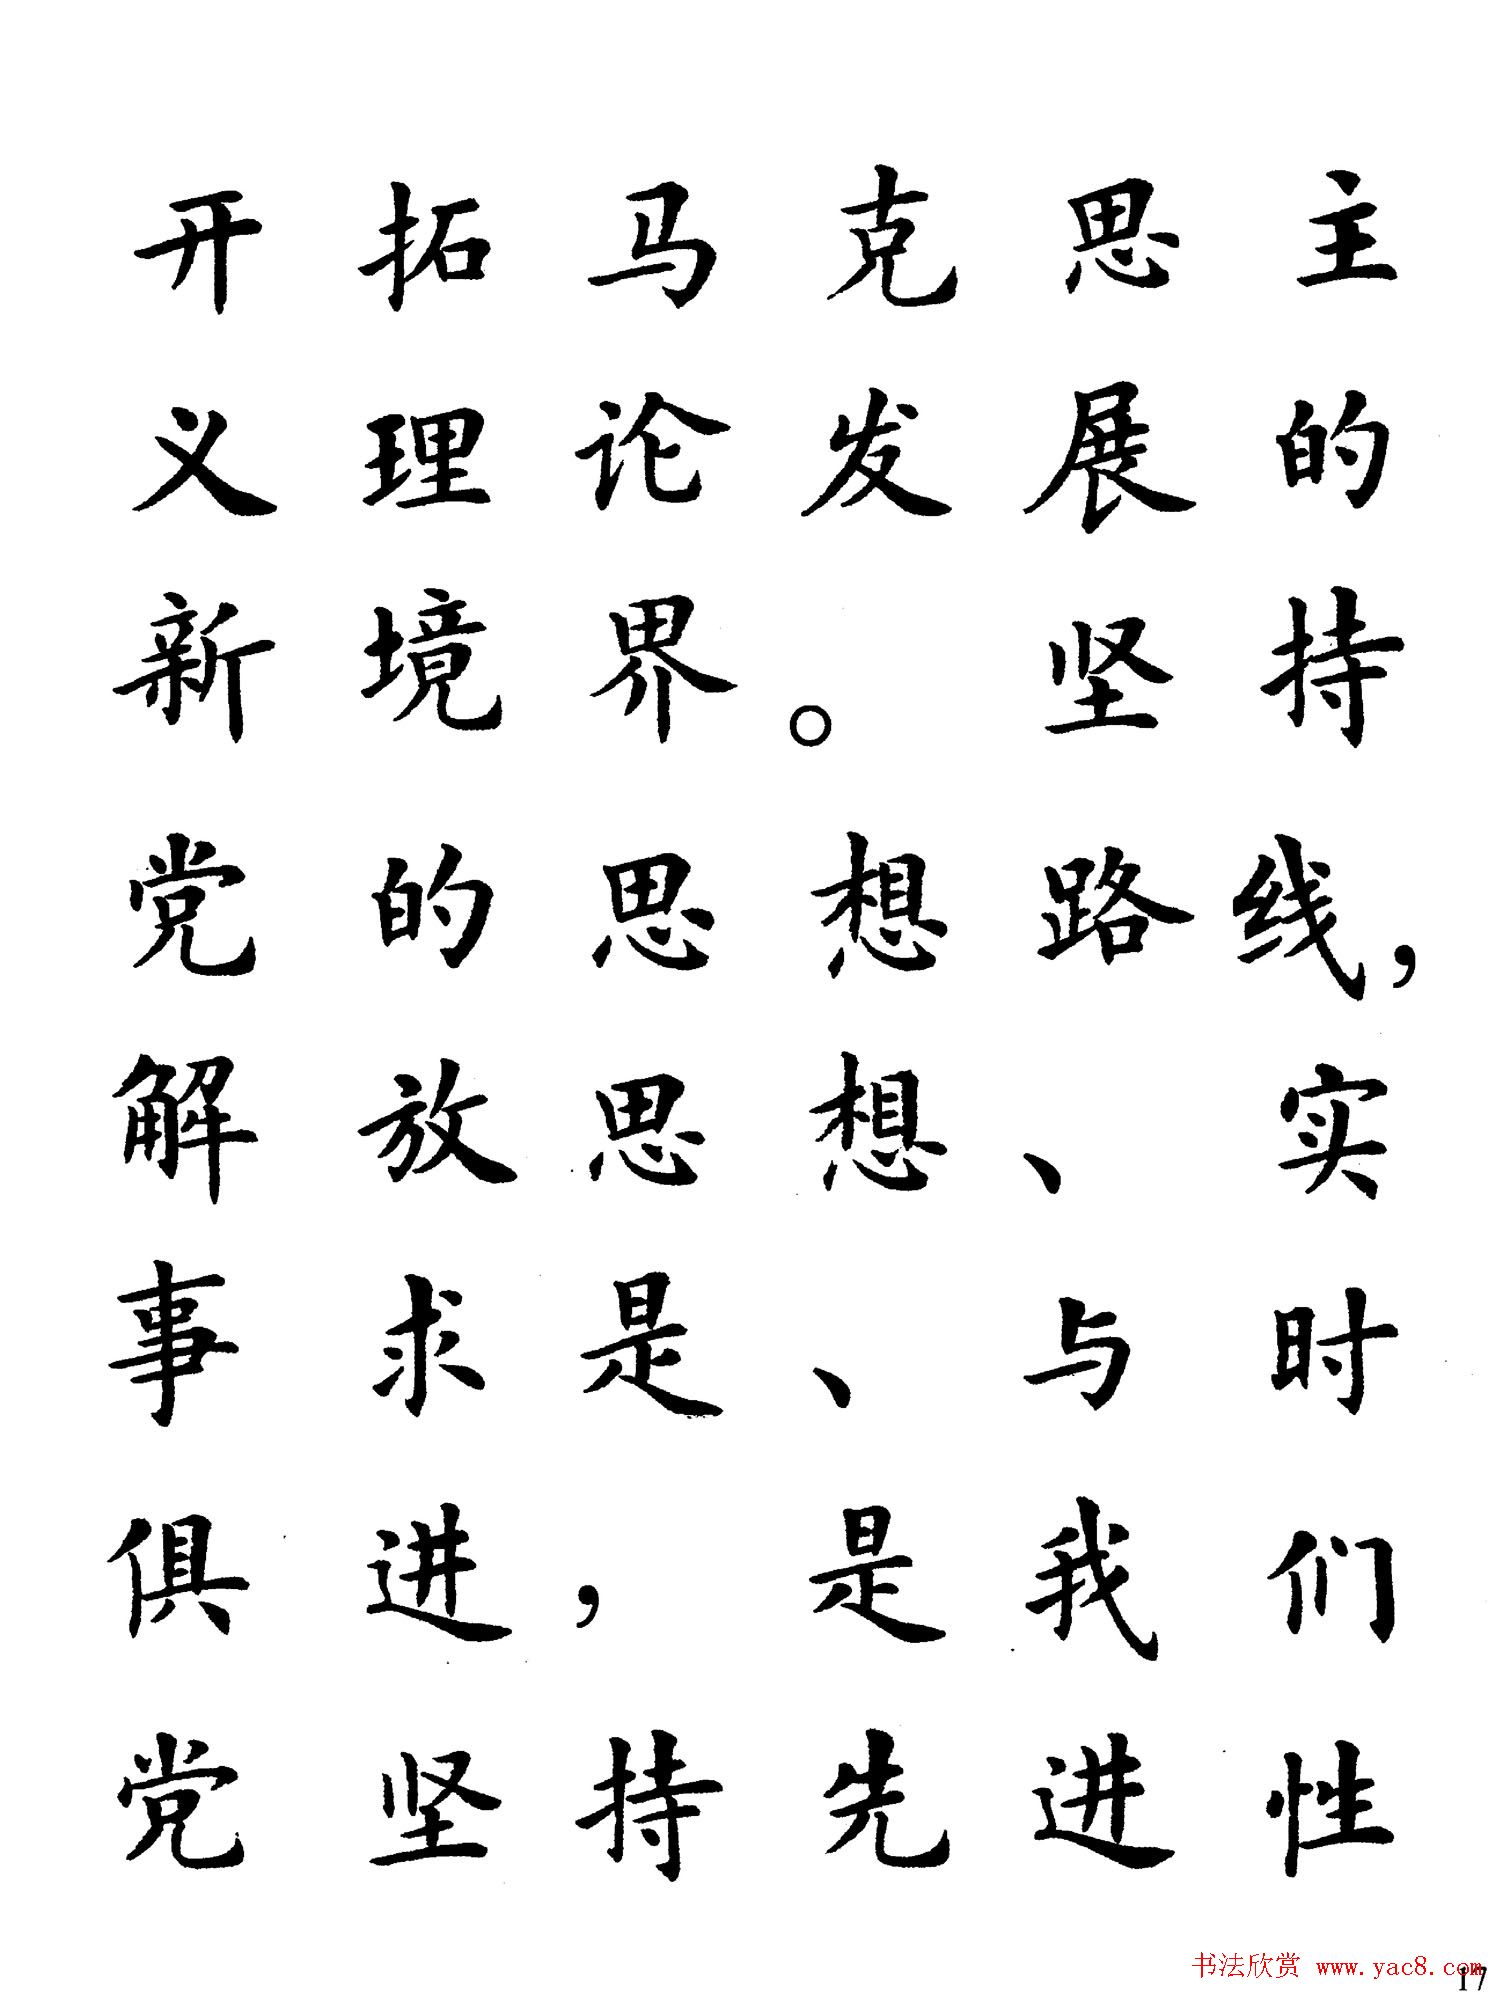 开拓马克思主
义理论发展的
新境界。坚持
党的思想路线，
解放思想、实
事求是、与时
俱进，是我们
党坚持先进性
书法欣赏 www.yac8.com
17